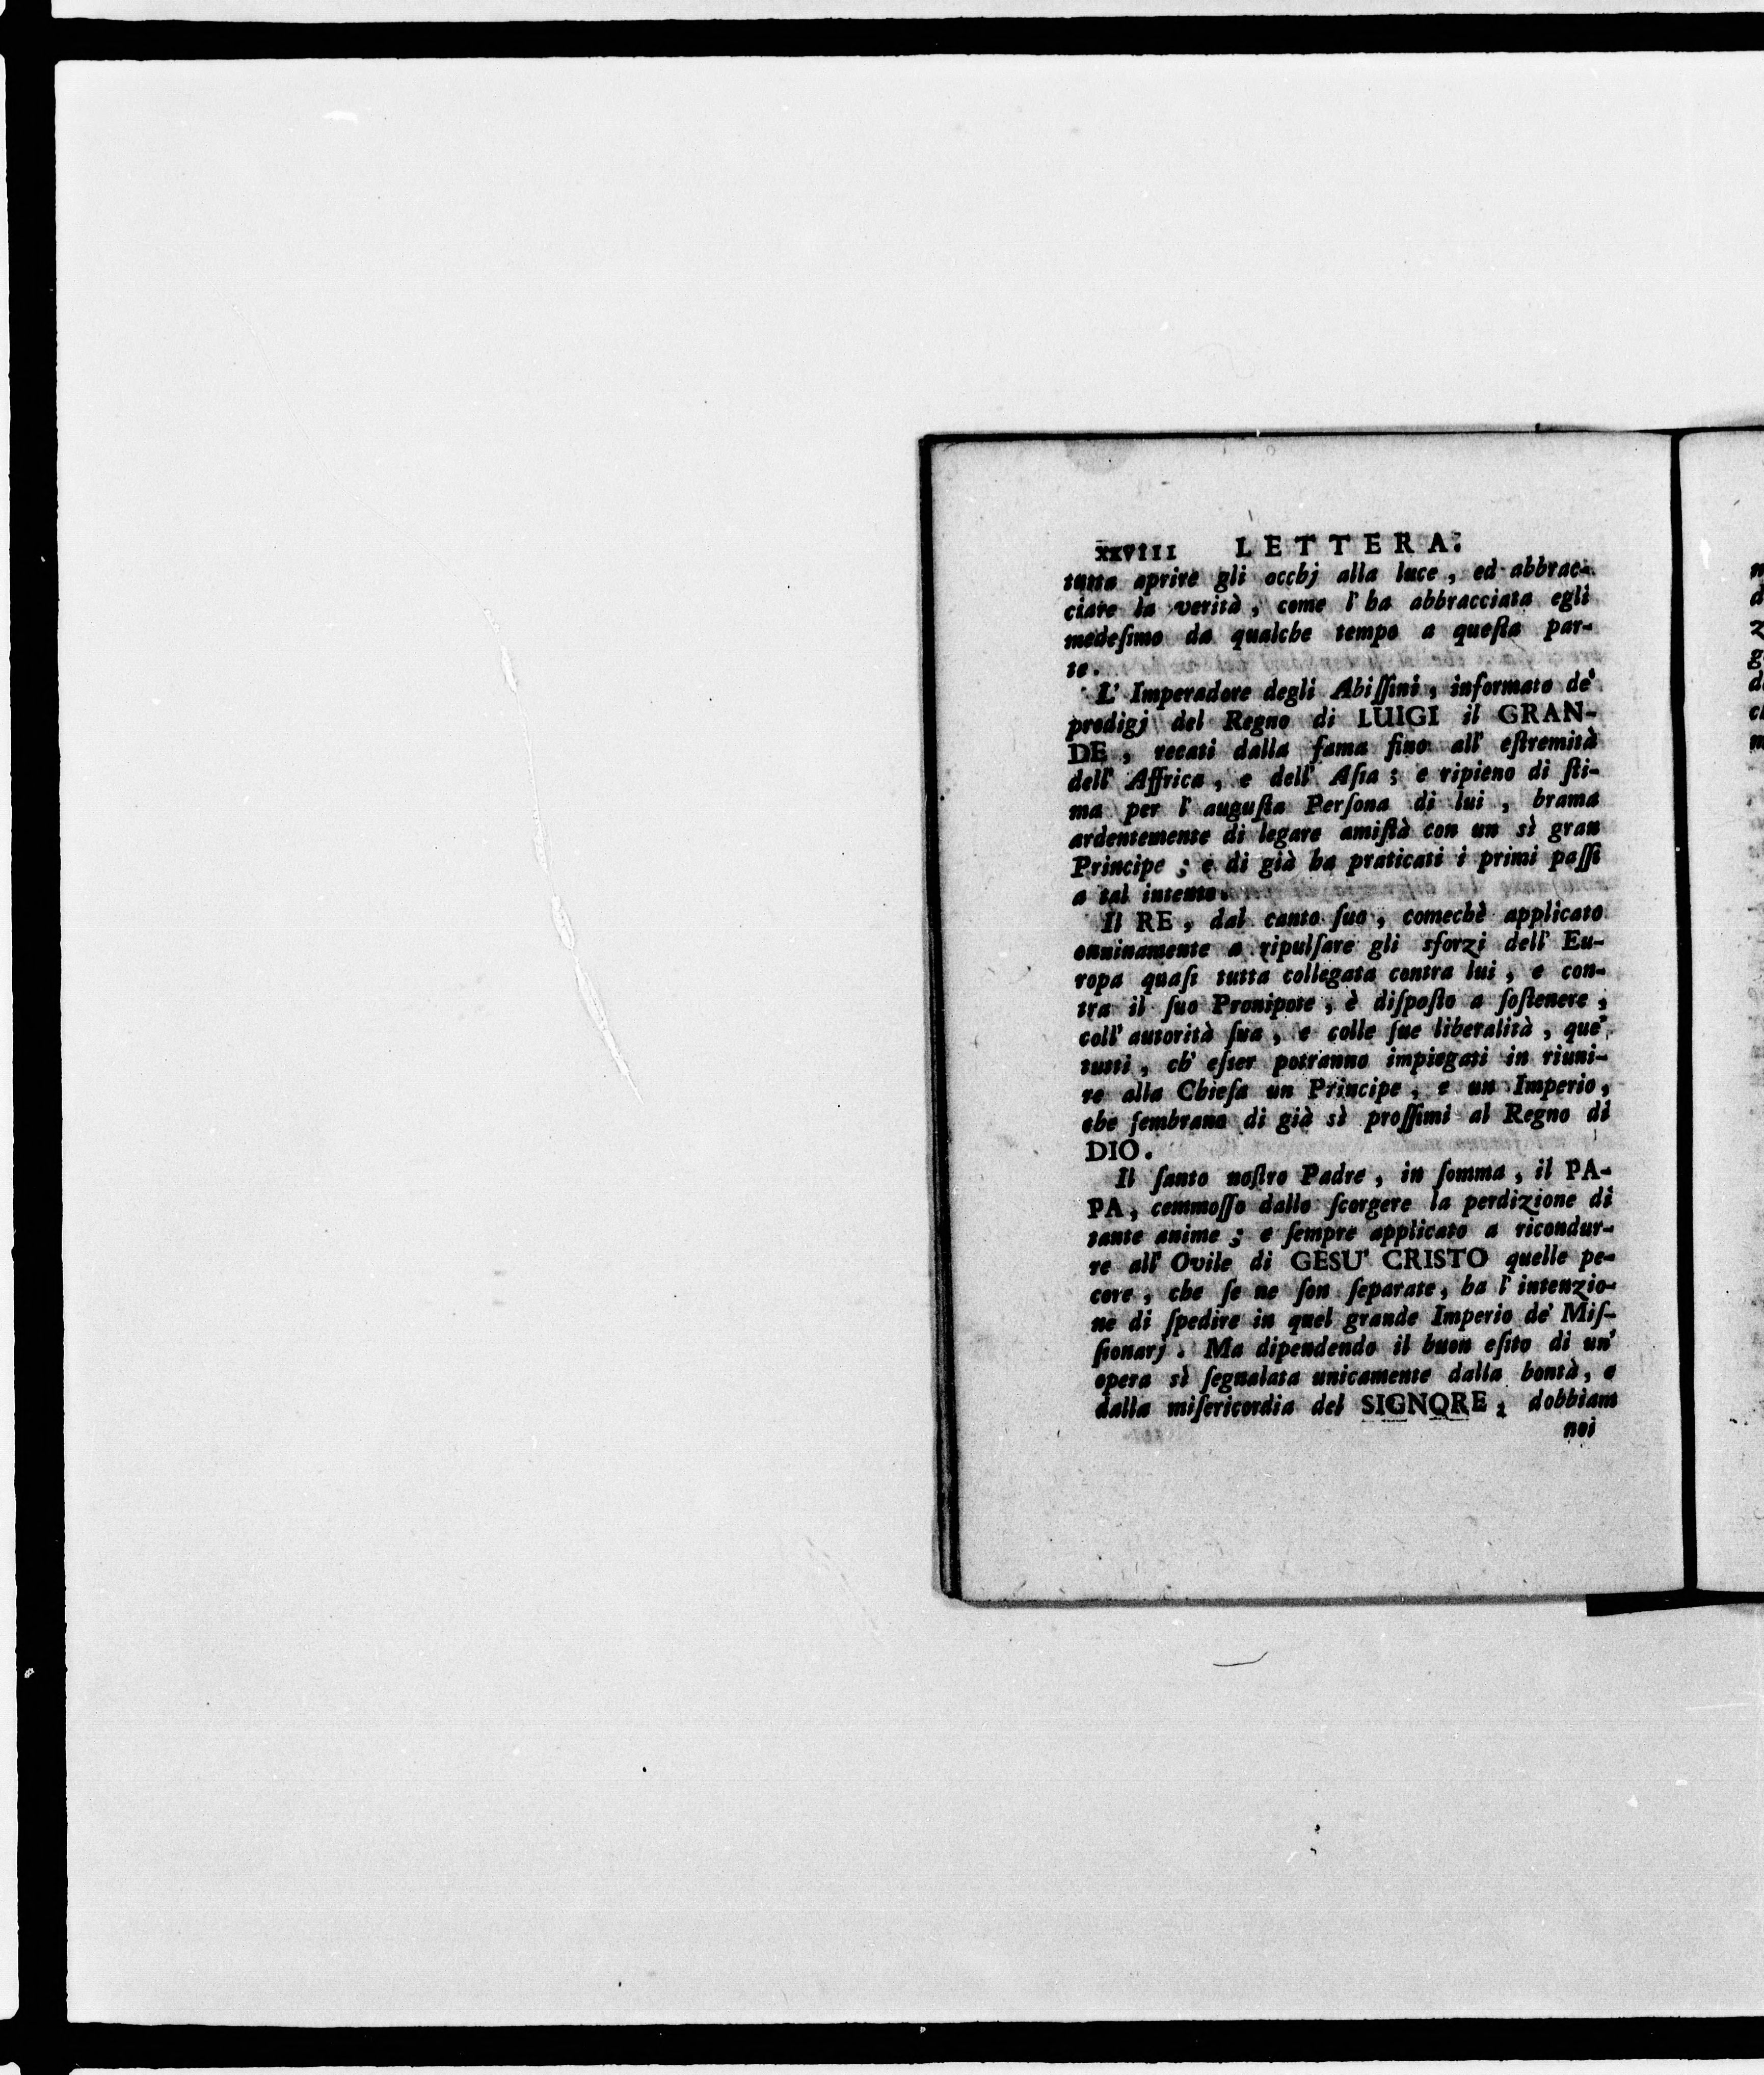 xxviii LETTERA.
tutta aprire gli occhj alla luce, ed abbrac-
ciare la verità, come l'ha abbracciata egli
medeſimo da qualche tempo a queſta par-
te.
L'Imperadore degli Abiſſini, informato de'
prodigj del Regno di LUIGI il GRAN-
DE, recati dalla fama fino all' eſtremità
dell' Affrica, e dell' Aſia; e ripieno di ſti-
ma per l'auguſta Perſona di lui, brama
ardentemente di legare amiſtà con un sì gran
Principe; e di già ha praticati i primi paſſi
a tal intento.
Il RE, dal canto ſuo, comechè applicato
onninamente a ripulſare gli sforzi dell' Eu-
ropa quaſi tutta collegata contra lui, e con-
tra il ſuo Pronipote, è diſpoſto a ſoſtenere,
coll' autorità ſua, e colle ſue liberalità, que'
tutti, ch' eſser potranno impiegati in riuni-
re alla Chieſa un Principe, e un Imperio,
che ſembrano di già sì proſſimi al Regno di
DIO.
Il ſanto noſtro Padre, in ſomma, il PA-
PA, commoſſo dallo ſcorgere la perdizione di
tante anime; e ſempre applicato a ricondur-
re all' Ovile di GESU' CRISTO quelle pe-
core, che ſe ne ſon ſeparate, ha l'intenzio-
ne di ſpedire in quel grande Imperio de' Miſ-
ſionarj. Ma dipendendo il buon eſito di un'
opera sì ſegnalata unicamente dalla bontà, e
dalla miſericordia del SIGNORE; dobbiam
noi